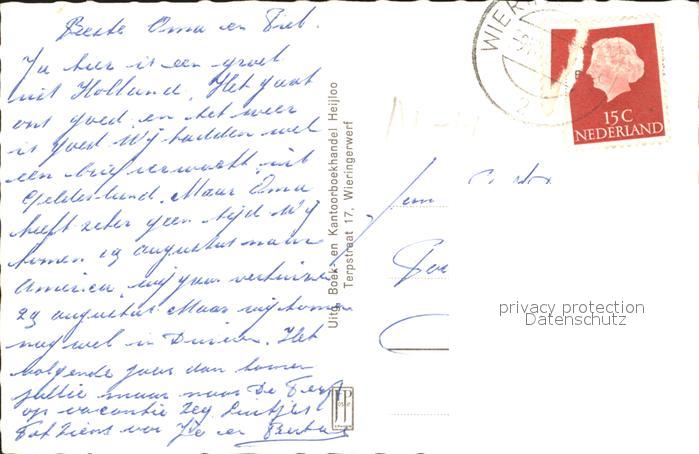 Beste Oma en Piet.
Ja hier is een groet
uit Holland. Het gaat
ons goed en het weer
is goed Wij hadden wel
een brief verwacht uit
Gelderland. Maar Oma
heeft zeker geen tijd Wij
komen 19 augustus naar
America, wij gaan verhuizen
29 augustus Maar wij komen
nog wel in Duiven. Het
volgende jaar dan komen
jullie maar naar De Terp
op vacantie zeg
Tot ziens voor en
Uitg. Boek- en Kantoorboekhandel Heijloo
Terpstraat 17, Wieringerwerf
JP
WIER
2
15 C
NEDERLAND
privacy protection
Datenschutz